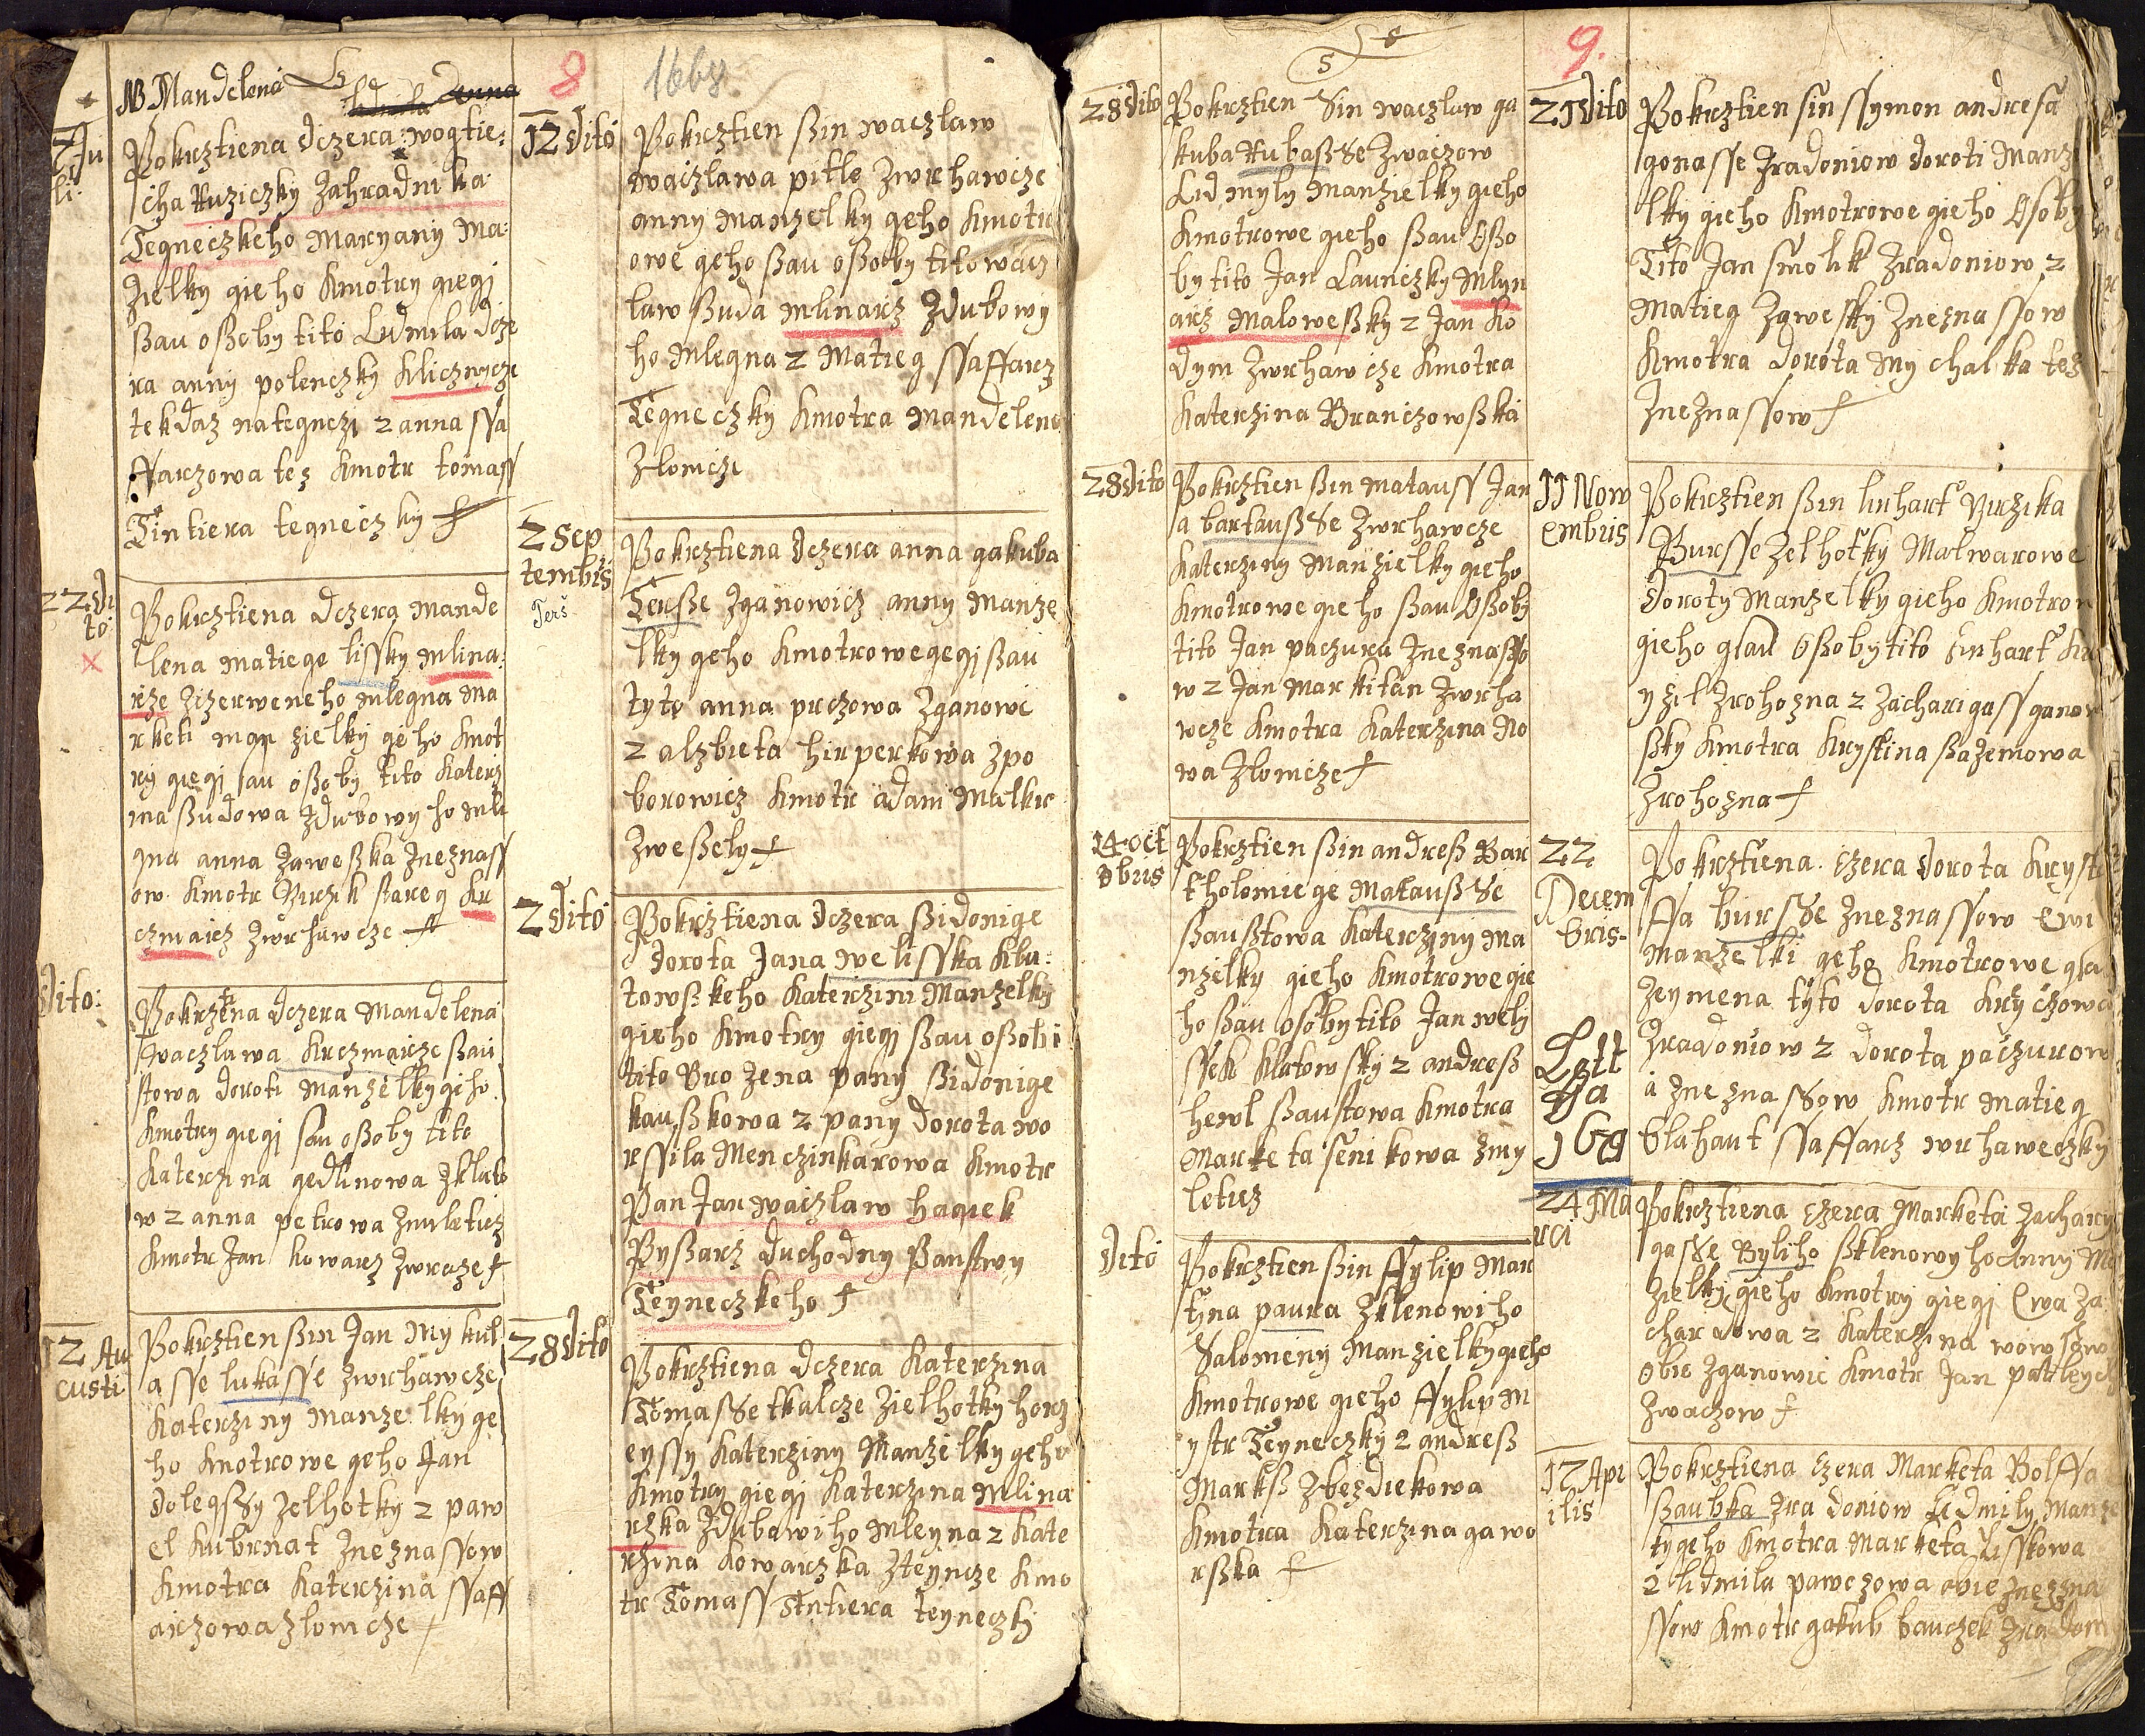 8
1668.
NB Mandelena
Anna
7 Ju
li:
Pokrztiena dczera wogtie:
cha Kuziczky Zahradnika
Tegneczkeho Maryany Ma:
Zielky gieho Kmotry giegj
ßau oßoby tito Ludmila dcze
ra anny polenczky Klicznycze
tekdaz nategnczi z anna ssa
ffarzowa tez Kmotr tomass
Tintiera tegneczky
22 di
to
Pokrztiena dczera Mande
lena matiege lissky mlina:
rze Zczerweneho mlegna ma
rketi man zielky geho Kmot
ry giegj sau oßoby tito Katerz
ina ßudowa Zdubowyho mle
gna anna Zaweßka Zneznass
ow Kmotr Girzik stareg Kr
czmarz Zwrhawcze
dito:
Pokrztena dczera Mandelena
Waczlawa Krczmarze ßau
stowa doroti Manzelky gieho
Kmotry giegj sau oßoby tito
Katerzina gedlinowa Zklato
w z anna petrowa Zmileticz
Kmotr Jan Kowarz Zwraze
12 Au
custi
Pokrztien ßin Jan Mykul
asse lukasse Zwrhawcze
Katerziny Manzelky ge
ho Kmotrowe geho Jan
dolegssy Zelhotky z paw
el Kubrnat Zneznassow
Kmotra Katerzina ssaff
arzowa Zlomcze
12 dito
Pokrztien ßin waczlaw
waczlawa pitle Zwrhawcze
anny Manzelky geho Kmotr
owe geho ßau oßoby tito wacz
law ßuda mlinarz Zdubowy
ho Mlegna z Matieg ssaffarz
Tegneczky Kmotra Mandelena
Zlomczi
2 Sep
tembris
Terš
Pokrztiena dczera anna gakuba
Terße Zganowicz anny Manze
lky geho Kmotrowe gegj ßau
tyto anna prczowa Zganowi
z alzbieta hirperkowa Zpo
borowicz Kmotr adam Malkr
Zweßely
2 dito
Pokrztiena dczera ßidonige
dorota Jana welisska Kla:
towßkeho Katerzini Manzelky
gieho Kmotry giegj ßau oßobi
tito Bro Zena pany ßidonige
kaußkowa z pany dorota wo
rssila Menczinkarowa Kmotr
Pan Jan waczlaw hagek
Pyßarz duchodny Panstwy
Teyneczkeho
28 dito
Pokrztiena dczera Katerzina
Tomasse tkalcze Zielhotky horz
eyssy Katerziny Manzelky geho
Kmotry giegj Katerzina mlina
rzka Zdubowiho Mleyna z Kate
rzina Kowarzka Zteyncze Kmo
tr Tomass Tintiera teyneczky
5
28 dito
Pokrztien Sin waczlaw ga
kuba Kubaßße Zwaczow
Lidmyly Manzielky gieho
Kmotrowe gieho ßau oßo
by tito Jan Launiczky Mlyn
arz Maloweßky z Jan Ko
dym Zwrhawcze Kmotra
Katerzina Branczowßka
28 dito
Pokrztien ßin matauss Jan
a bartaußße Zwrhawcze
Katerziny Manzielky gieho
Kmotrowe gieho ßau oßoby
tito Jan paczura Zneznasso
w z Jan Markitan Zwrha
wcze Kmotra Katerzina No
wa Zlomcze
14 oct
obris
Pokrztien ßin andreß Bar
tholomiege Matausse
ßaußtowa Katerziny ma
nzelky gieho Kmotrowe gie
ho ßau osoby tito Jan wely
ssek Klatowsky z andreß
hewl ßaustowa Kmotra
Marketa senikowa Zmy
leticz
dito
Pokrztien ßin ffylip Mar
tyna paura Zklenowiho
Salomeny Manzielky gieho
Kmotrowe gieho ffylip M
ystr Teyneczky z andreß
Markß Zbezdiekowa
Kmotra Katerzina gawo
rßka
9.
21 dito
Pokrztien sin ssymon andresa
gonasse Zradoniow doroti Manz
lky gieho Kmotrowe gieho osoby
Tito Jan smolik Zradoniow z
Matieg Zaweßky Zneznassow
Kmotra dorota Mychalka tez
Zneznassow
11 Now
embris
Pokrztien ßin linhart Girzika
Bursse Zelhotky Malwarowe
doroty Manzelky gieho Kmotrow
gieho gsau oßoby tito Linhart
yzil Zrohozna z Zacharigass ganow
ßky Kmotra Krystina ßazemowa
Zrohozna
22
Decem
bris
Pokrztiena czera dorota Kryst
ffa bursse Zneznassow Ewi
Manzelki geho Kmotrowe gsa
Zeymena tyto dorota Kryczowa
Zradoniow z dorota paczurow
a Zneznassow Kmotr Matieg
blahaut ssaffarz wrhaweczky
Lett
ha
169
24 Ma
rci
Pokrztiena czera Marketa Zachary
gasse Byliho ßklenowyho Anny Ma
Zielky gieho Kmotry giegj Ewa Za
charowa z Katerzina
obie Zganowic Kmotr Jan
Zwaczow
12 Apr
ilis
Pokrztiena czera Marketa Bolffa
ßaubka Zradoniow Lidmily Manze
ly geho Kmotra Marketa lisskowa
z lidmila pawczowa obie Znezna
ssow Kmotr gakub bauczek Zradoni